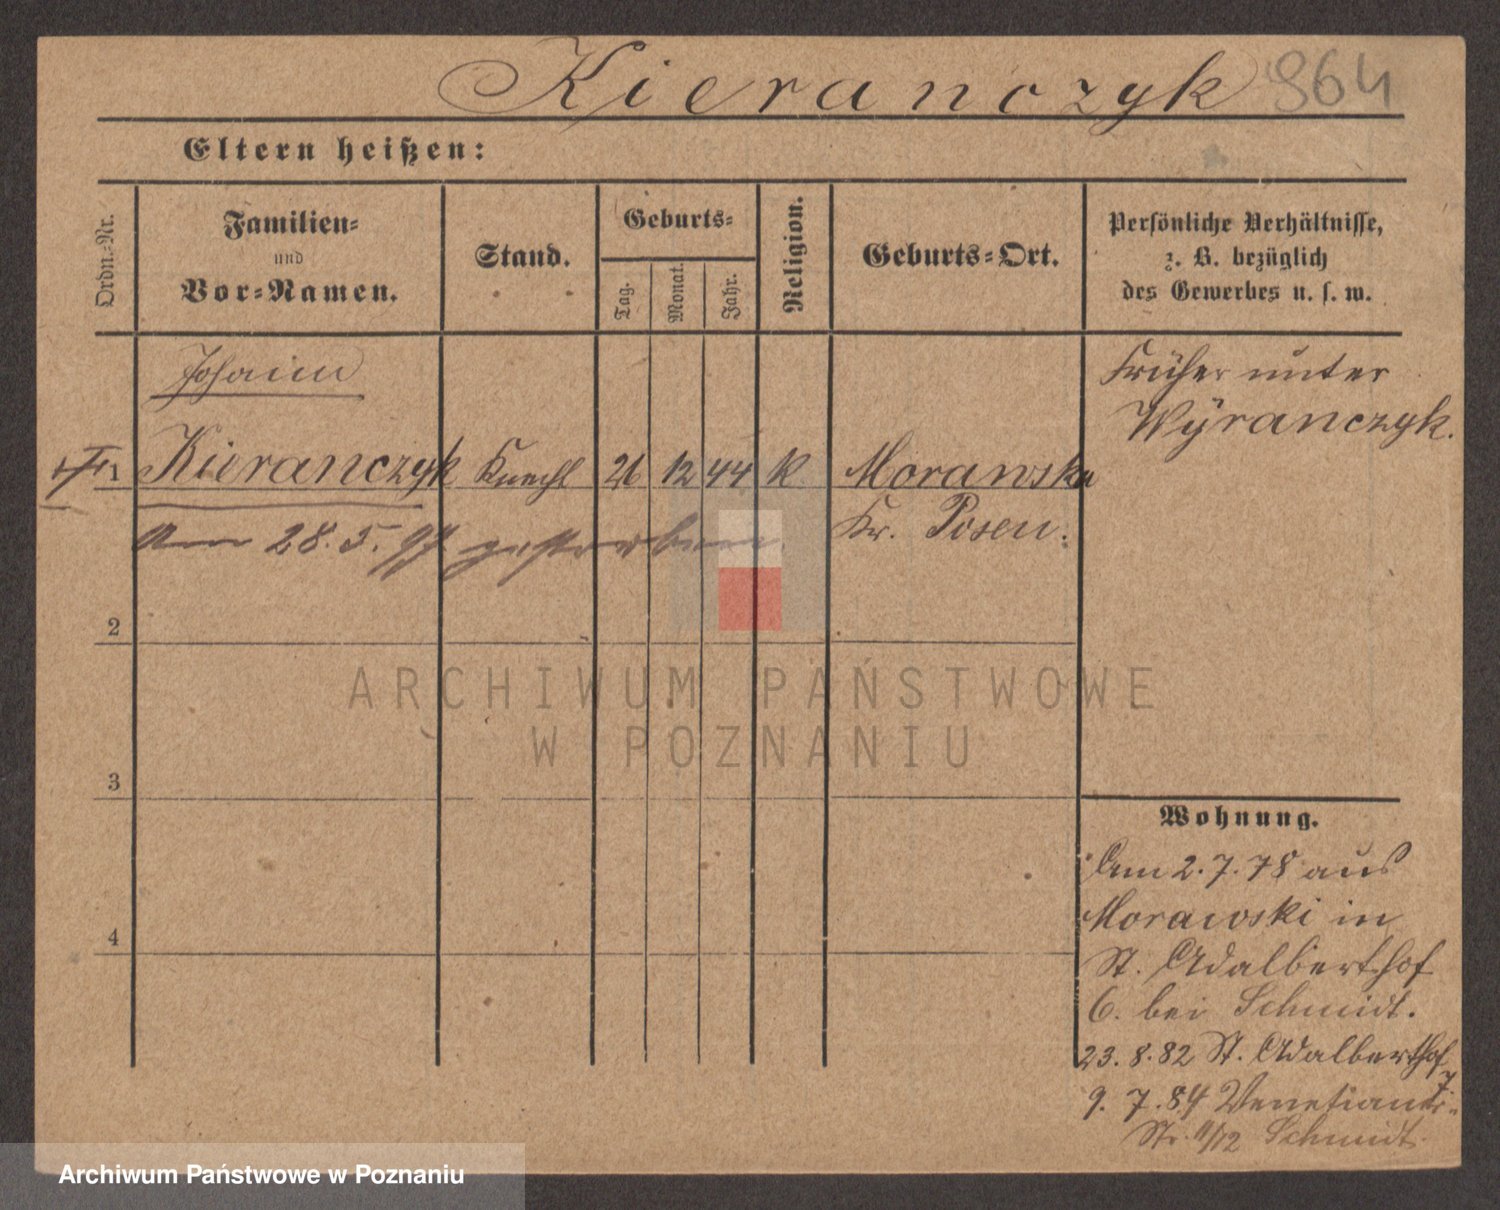 Kieranczyk 964
Eltern heißen:
Ordn.=Nr.
Familien=
und
Vor=Namen.
Stand.
Geburts=
Tag.
Monat.
Jahr.
Religion.
Geburts=Ort.
Persönliche Verhältnisse,
z. B. bezüglich
des Gewerbes u. s. w.
Johann
Früher unter
Wÿranczyk.
1 Kieranczyk Knecht 26 12 44 K Morawsko
Kr. Posen.
Am 28. 5. gestorben.
2
3
4
ARCHIWUM PAŃSTWOWE
W POZNANIU
Wohnung.
Am 2. 7. 78 aus
Morawski in
St. Adalberthof
6. bei Schmidt.
23. 8. 82 St. Adalberthof 7.
9. 7. 84 Venetianer=
Str. 11/12 Schmidt.
Archiwum Państwowe w Poznaniu